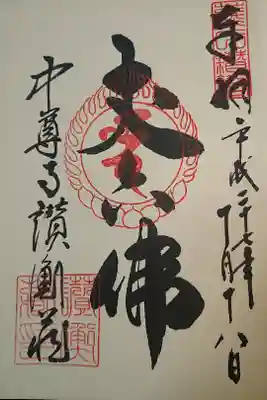 奉拝
平成二十七年十月十八日
丈六佛
中尊寺讃衡蔵